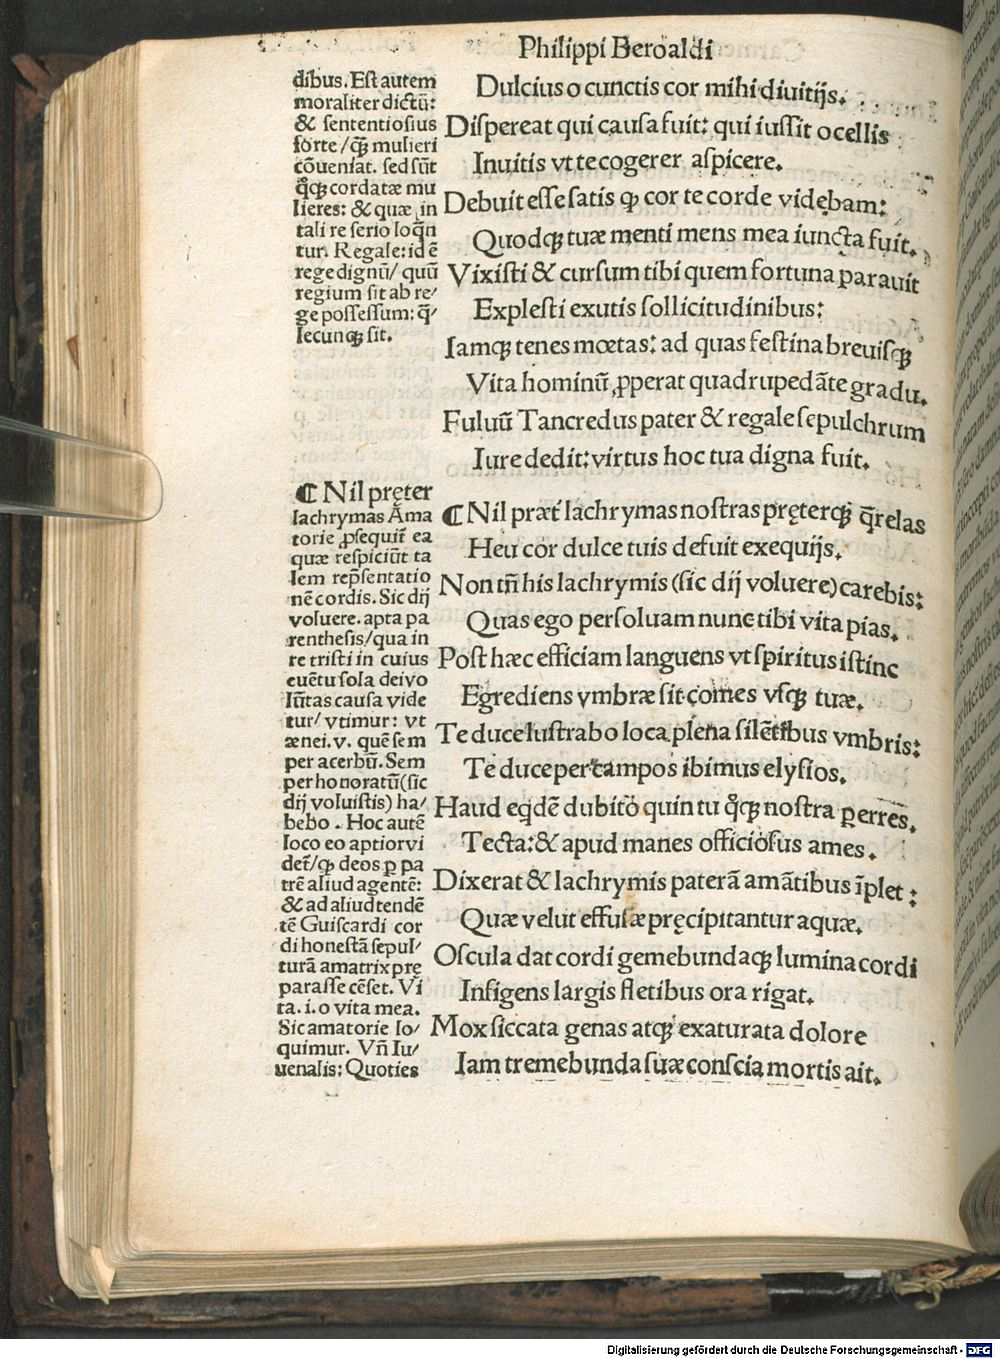 Philippi Beroaldi
dibus. Est autem
moraliter dictū:
& sententiosius
forte/ꝙ mulieri
cōueniat. sed sūt
q̊ꝗ cordatæ mu
lieres: & quæ in
tali re serio loq̄n
tur. Regale: id ē
rege dignū/ quū
regium sit ab re/
ge possessum: q̄/
lecunꝗ sit.
Dulcius o cunctis cor mihi diuitijs.
Dispereat qui causa fuit: qui iussit ocellis
Inuitis vt te cogerer aspicere.
Debuit esse satis ꝙ cor te corde vidębam:
Quodꝗ tuæ menti mens mea iuncta fuit.
Vixisti & cursum tibi quem fortuna parauit
Explesti exutis sollicitudinibus:
Iamꝗ tenes mœtas: ad quas festina breuisꝗ
Vita hominū ꝓperat quadrupedāte gradu.
Fuluū Tancredus pater & regale sepulchrum
Iure dedit: virtus hoc tua digna fuit.
¶ Nil pręter
lachrymas Āma
torie ꝓsequit̄ ea
quæ respiciūt ta
lem rep̄sentatio
nē cordis. Sic dij
voluere. apta pa
renthesis/qua in
re tristi in cuius
euētu sola deivo
lūtas causa vide
tur/ vtimur: vt
ænei. v. quē sem
per acerbū. Sem
per honoratū(sic
dij voluistis) ha/
bebo. Hoc autē
loco eo aptiorvi
det̄/ꝙ deos ꝑ pa
trē aliud agentē:
& ad aliud tendē
tē Guiscardi cor
di honestā sepul/
turā amatrix prę
parasse cēset. Vi
ta. i. o vita mea.
Sic amatorie lo/
quimur. Vn̄ Iu/
uenalis: Quoties
¶ Nil præt̄ lachrymas nostras pręterꝗ q̄relas
Heu cor dulce tuis defuit exequijs.
Non tn̄ his lachrymis (sic dij voluere) carebis:
Quas ego persoluam nunc tibi vita pias.
Post hæc efficiam languens vt spiritus istinc
Egrediens vmbræ sit comes vsꝗ tuæ.
Te duce lustrabo loca plena silētibus vmbris:
Te duce per campos ibimus elysios.
Haud eq̇dē dubito quin tu q̊ꝗ nostra ꝑerres.
Tecta: & apud manes officiosus ames.
Dixerat & lachrymis paterā amātibus īplet:
Quæ velut effusæ pręcipitantur aquæ.
Oscula dat cordi gemebundaꝗ lumina cordi
Infigens largis fletibus ora rigat.
Mox siccata genas atꝗ exaturata dolore
Iam tremebunda suæ conscia mortis ait.
Digitalisierung gefördert durch die Deutsche Forschungsgemeinschaft - DFG